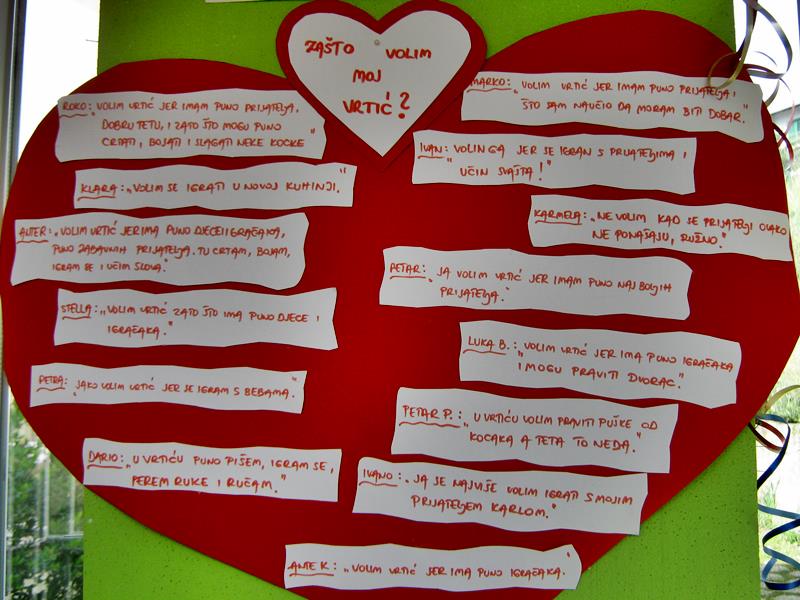 ZAŠTO VOLIM
MOJ
VRTIĆ?
ROKO: "VOLIM VRTIĆ JER IMAM PUNO PRIJATELJA,
DOBRU TETU, I ZATO ŠTO MOGU PUNO
CRTATI, BOJATI I SLAGATI NEKE KOCKE"
KLARA: "VOLIM SE IGRATI U NOVOJ KUHINJI."
ANTER: "VOLIM VRTIĆ JER IMA PUNO DJECE I IGRAČAKA,
PUNO ZABAVNIH PRIJATELJA. TU CRTAM, BOJAM,
IGRAM SE I UČIM SLOVA."
STELLA: "VOLIM VRTIĆ ZATO ŠTO IMA PUNO DJECE I
IGRAČAKA."
PETRA: "JAKO VOLIM VRTIĆ JER SE IGRAM S BEBAMA."
DARIO: "U VRTIĆU PUNO PIŠEM, IGRAM SE,
PEREM RUKE I RUČAM."
MARKO: "VOLIM VRTIĆ JER IMAM PUNO PRIJATELJA I
ŠTO SAM NAUČIO DA MORAM BITI DOBAR."
IVAN: "VOLIN GA JER SE IGRAN S PRIJATELJIMA I
UČIN SVAŠTA!"
KARMELA: "NE VOLIM KAD SE PRIJATELJI OVAKO
NE PONAŠAJU, RUŽNO."
PETAR: "JA VOLIM VRTIĆ JER IMAM PUNO NAJBOLJIH
PRIJATELJA."
LUKA B.: "VOLIM VRTIĆ JER IMA PUNO IGRAČAKA
I MOGU PRAVITI DVORAC."
PETAR P.: "U VRTIĆU VOLIM PRAVITI PUŠKE OD
KOCAKA A TETA TO NEDA."
IVANO: "JA JE NAJVIŠE VOLIM IGRATI S MOJIM
PRIJATELJEM KARLOM."
ANTE K: "VOLIM VRTIĆ JER IMA PUNO IGRAČAKA."